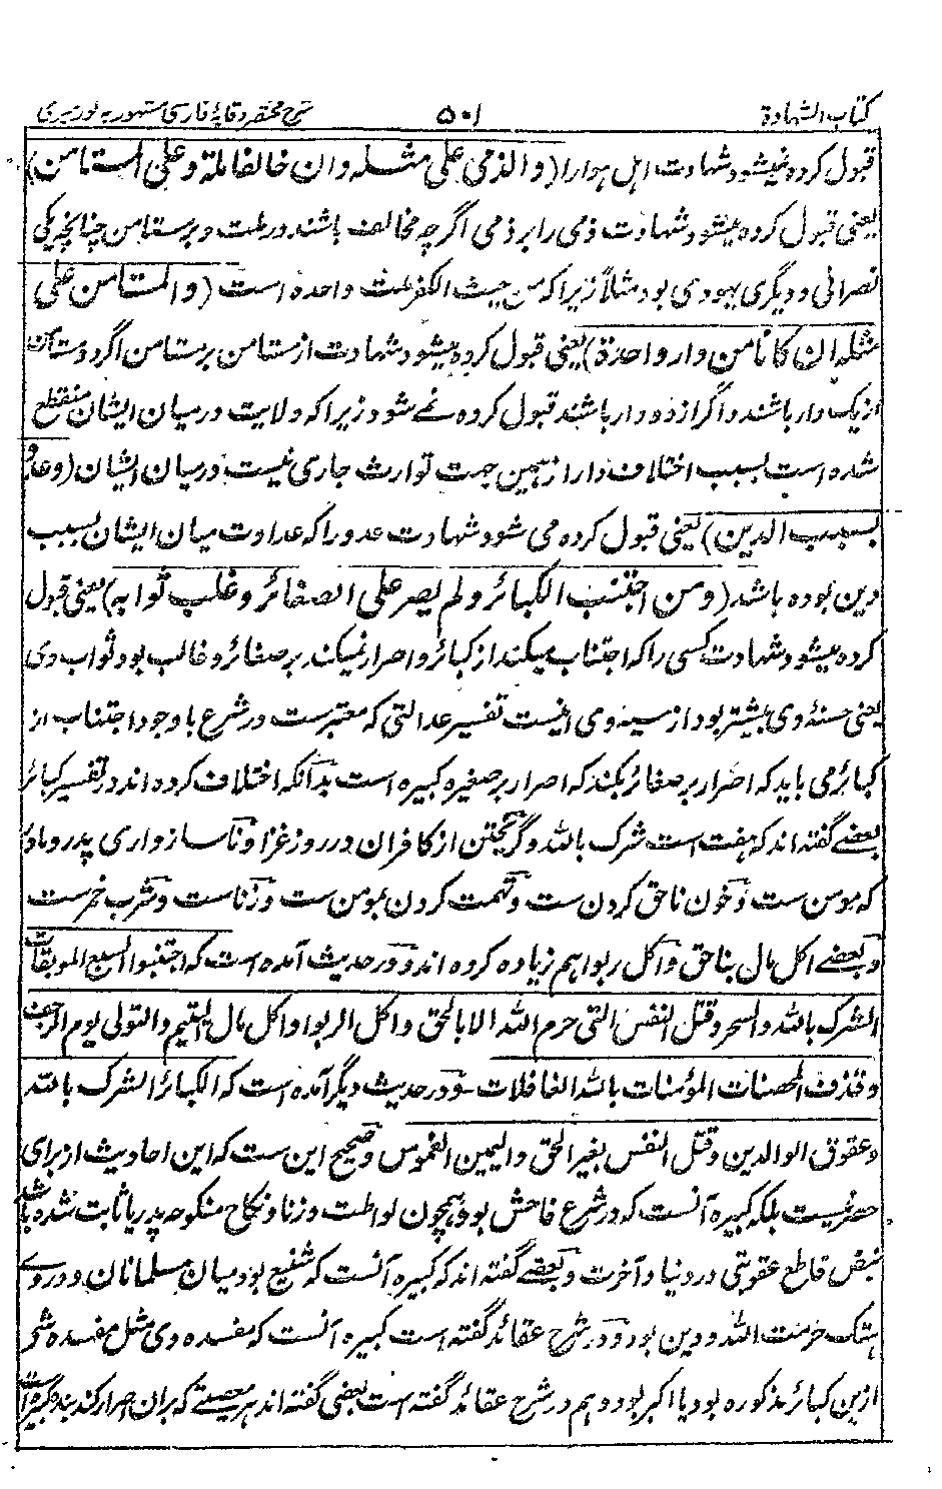 کتاب الشهادة ۵۰۱ شرح مختصر وقایۀ فارسی مشهور به نورمیری
قبول کرده نمیشود شهادت اهل هوا را (والذمی علی مثله وان خالفا ملة وعلی المستامن)
یعنی قبول کرده میشود شهادت ذمی را بر ذمی اگر چه مخالف باشند در ملت و بر مستامن چنانچه یکی
نصرانی و دیگری یهودی بود مثلاً زیرا که من حیث الکفر ملت واحده است (والمستامن علی
مثله ان کانا من دار واحدة) یعنی قبول کرده میشود شهادت از مستامن بر مستامن اگر دو مستامن
از یک دار باشند و اگر از ده دار باشند قبول کرده نمے شود زیرا که ولایت درمیان ایشان منقطع
شده است بسبب اختلاف دار ازهمین جهت توارث جاری نیست درمیان ایشان (وعدو
بسبب الدین) یعنی قبول کرده می شود شهادت عدو را که عداوت میان ایشان بسبب
دین بوده باشد (ومن اجتنب الکبائر ولم یصر علی الصغائر وغلب ثوابه) یعنی قبول
کرده میشود شهادت کسی را که اجتناب میکند از کبائر و اصرار نمیکند بر صغائر و غالب بود ثواب وی
یعنی حسنۀ وی بیشتر بود از سیئه وی اینست تفسیر عدالتی که معتبرست در شرع با وجود اجتناب از
کبائر می باید که اصرار بر صغائر نکند که اصرار بر صغیره کبیره است بدانکه اختلاف کرده اند در تفسیر کبائر
بعضے گفته اند که هفت است شرک بالله و گریختن از کافران در روز غزا و ناسازواری پدر و مادر
که مومن ست و خون ناحق کردن ست و تهمت کردن بمومن ست و زناست و شرب خمرست
و بعضے اکل مال بناحق و اکل ربوا هم زیاده کرده اند و در حدیث آمده است که اجتنبوا السبع الموبقات
الشرک بالله والسحر وقتل النفس التی حرم الله الا بالحق واکل الربوا واکل مال الیتیم والتولی یوم الزحف
وقذف المحصنات المؤمنات بالله الغافلات - و در حدیث دیگر آمده است که الکبائر الشرک بالله
وعقوق الوالدین وقتل النفس بغیر الحق والیمین الغموس و صحیح این ست که این احادیث از برای
حصر نیست بلکه کبیره آنست که در شرع فاحش بود همچون لواطت و زنا و نکاح منکوحه پدر یا ثابت شده باشد
بنص قاطع عقوبتی در دنیا و آخرت و بعضے گفته اند که کبیره آنست که شنیع بود میان مسلمانان و در وے
هتک حرمت الله و دین بود و در شرح عقائد گفته است کبیره آنست که مفسده وی مثل مفسده شر
ازین کبائر مذکوره بود یا اکبر بود و هم در شرح عقائد گفته است بعضی گفته اند هر معصیتے که بران اصرار کند بنده کبیره است